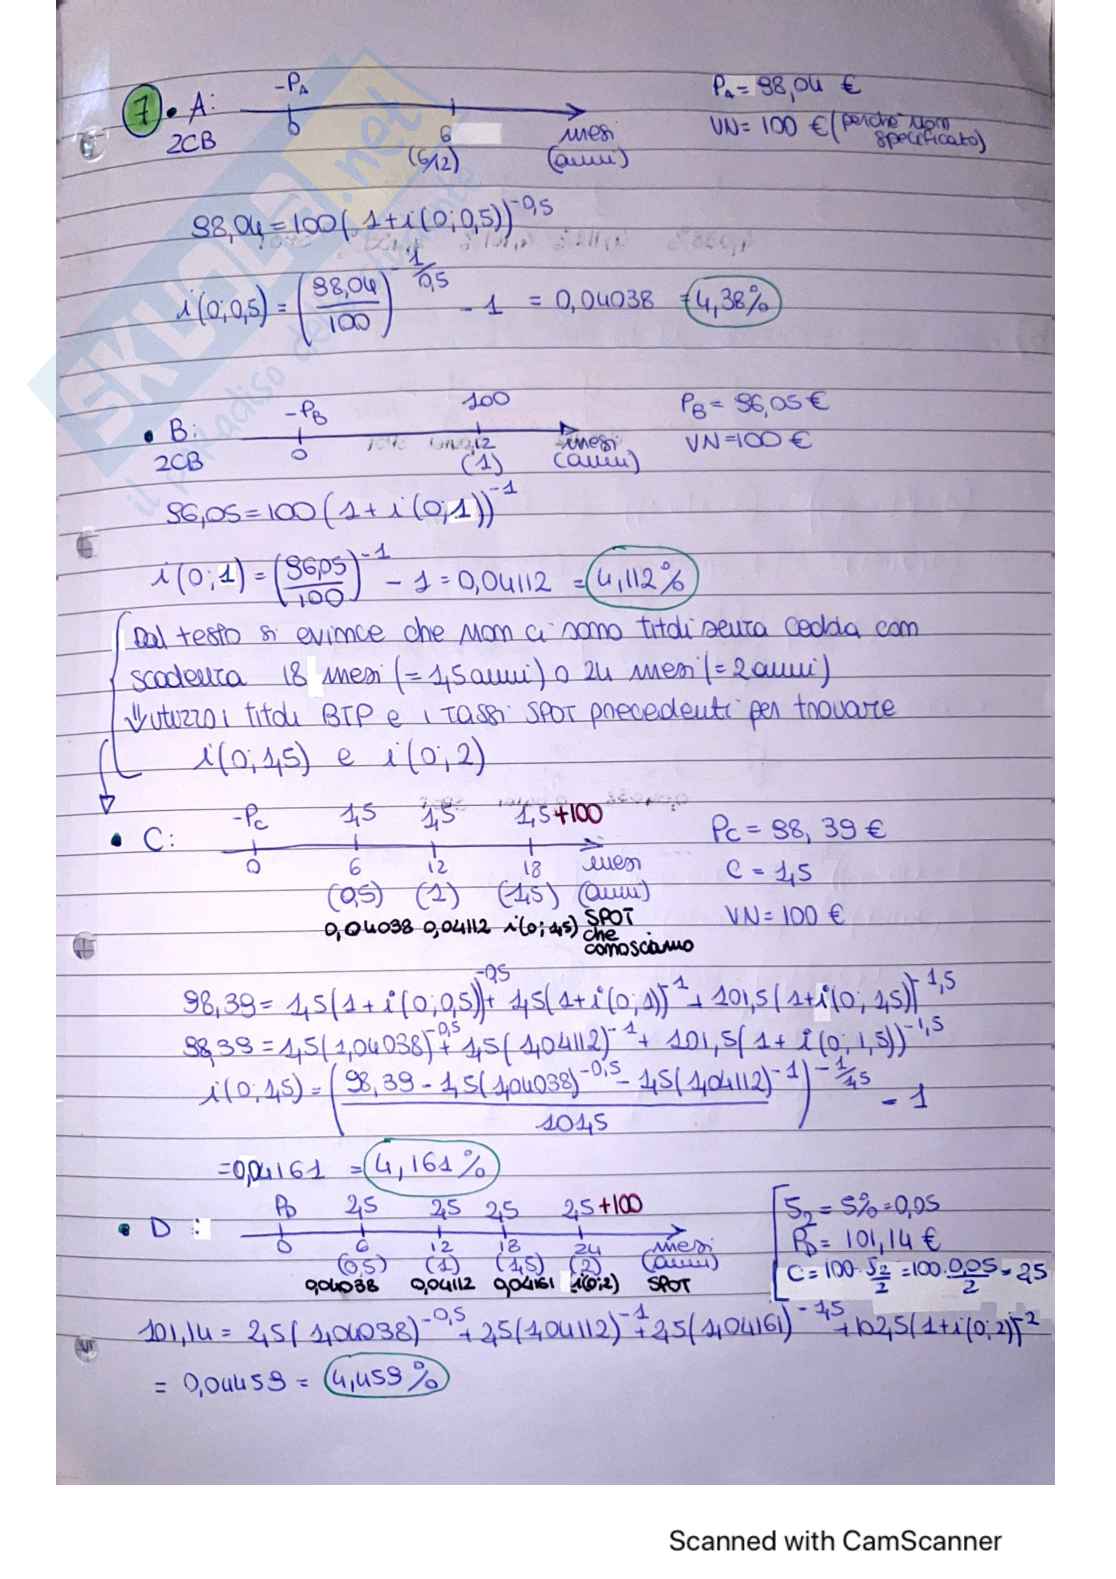 7 • A:
2CB
-PA
0
6
(6/12)
mesi
(anni)
PA = 98,04 €
VN = 100 € (perché non specificato)
98,04 = 100 ( 1 + i(0;0,5))^-0,5
i(0;0,5) = (98,04/100)^-1/0,5 - 1 = 0,04038 = 4,38%
• B:
2CB
-PB
0
100
12
(1)
mesi
(anni)
PB = 96,05 €
VN = 100 €
96,05 = 100 ( 1 + i(0;1))^-1
i(0;1) = (96,05/100)^-1 - 1 = 0,04112 = 4,112%
Dal testo si evince che non ci sono titoli senza cedola con
scadenza 18 mesi (= 1,5 anni) o 24 mesi (= 2 anni)
↓ utilizzo i titoli BTP e i TASSI SPOT precedenti per trovare
i(0;1,5) e i(0;2)
• C:
-Pc 1,5 1,5 1,5+100
0 6 12 18 mesi
(0,5) (1) (1,5) (anni)
0,04038 0,04112 i(0;1,5) SPOT che conosciamo
Pc = 98,39 €
C = 1,5
VN = 100 €
98,39 = 1,5(1+i(0;0,5))^-0,5 + 1,5(1+i(0;1))^-1 + 101,5(1+i(0;1,5))^-1,5
98,39 = 1,5(1,04038)^-0,5 + 1,5(1,04112)^-1 + 101,5(1+i(0;1,5))^-1,5
i(0;1,5) = ((98,39 - 1,5(1,04038)^-0,5 - 1,5(1,04112)^-1)/101,5)^-1/1,5 - 1
= 0,04161 = 4,161%
• D :
PD 2,5 2,5 2,5 2,5+100
0 6 12 18 24 mesi
(0,5) (1) (1,5) (2) (anni)
0,04038 0,04112 0,04161 i(0;2) SPOT
S2 = 5% = 0,05
PD = 101,14 €
C = 100 · S2/2 = 100 · 0,05/2 = 2,5
101,14 = 2,5(1,04038)^-0,5 + 2,5(1,04112)^-1 + 2,5(1,04161)^-1,5 + 102,5(1+i(0;2))^-2
= 0,04459 = 4,459%
SKUOLA.net
Scanned with CamScanner